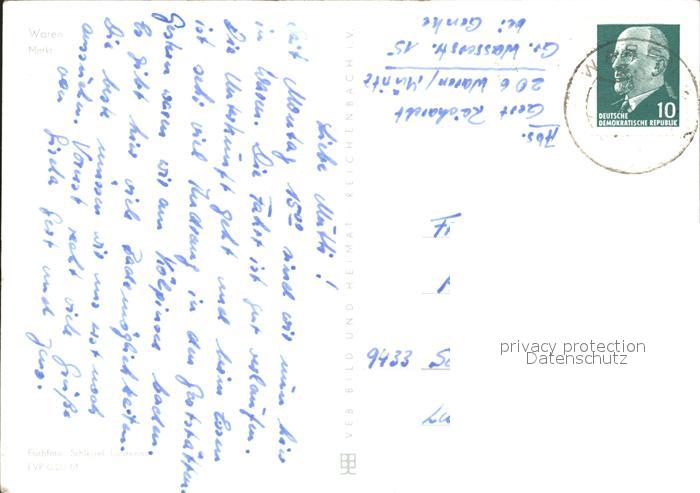 Waren
Markt
Liebe Mutti!
Seit Montag 15⁰⁰ sind wir nun hier
in Waren. Die Fahrt ist gut verlaufen.
Die Unterkunft geht und beim Essen
ist sehr viel Andrang in den Gaststätten.
Gestern waren wir am Kölpinsee baden.
Es gibt hier viele Bademöglichkeiten.
Die beste müssen wir uns erst noch
aussuchen. Vorerst recht viele Grüße
von Gisela Gert und
EVP 0,20 M
VEB BILD UND HEIMAT REICHENBACH I. V.
Abs.
Gert Reichardt
206 Waren/Müritz
Gr. Wasserstr. 15
bei Genke
DEUTSCHE
DEMOKRATISCHE REPUBLIK
10
9433
privacy protection
Datenschutz